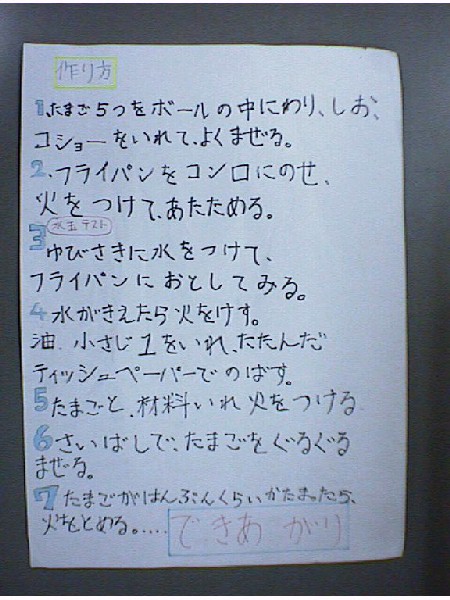 作り方
1.たまご5つをボールの中にわり、しお、
コショーをいれて、よくまぜる。
2.フライパンをコンロにのせ、
火をつけて、あたためる。
水玉テスト
3 ゆびさきに水をつけて、
フライパンにおとしてみる。
4 水がきえたら火をけす。
油 小さじ1をいれ、たたんだ
ティッシュペーパーでのばす。
5 たまごと、材料いれ火をつける
6 さいばしで、たまごをぐるぐる
まぜる。
7 たまごがはんぶんくらいかたまったら、
火をとめる。.... できあがり